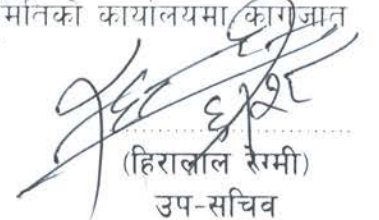 मितिको कार्यालयमा कागजात
(हिरालाल रेग्मी)
उप-सचिव